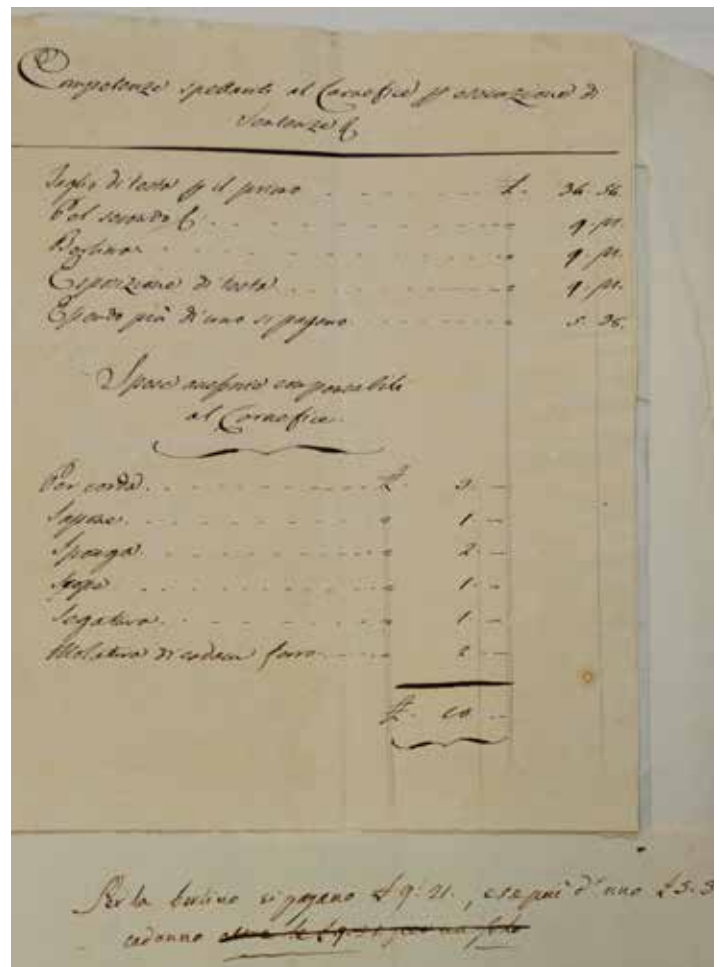 Competenze spettanti al Carnefice pr esecuzione di
Sentenze &
Taglio di testa pr il primo £. 36. 56.
Pel secondo & " 9 21.
Berlina " 9 21.
Esposizione di testa " 9 21.
Essendo più di uno si pagano " 5. 36.
Spese compensabili
al Carnefice.
Per corda £ 3. —
Sapone " 1 —
Sponga " 2. —
Scope " 1. —
Segatura " 1 —
Molatura di cadaun ferro " 2 —
£. 10 —
Per la berlina si pagano £ 9: 21., e se più d'uno £ 5. 3
cadauno